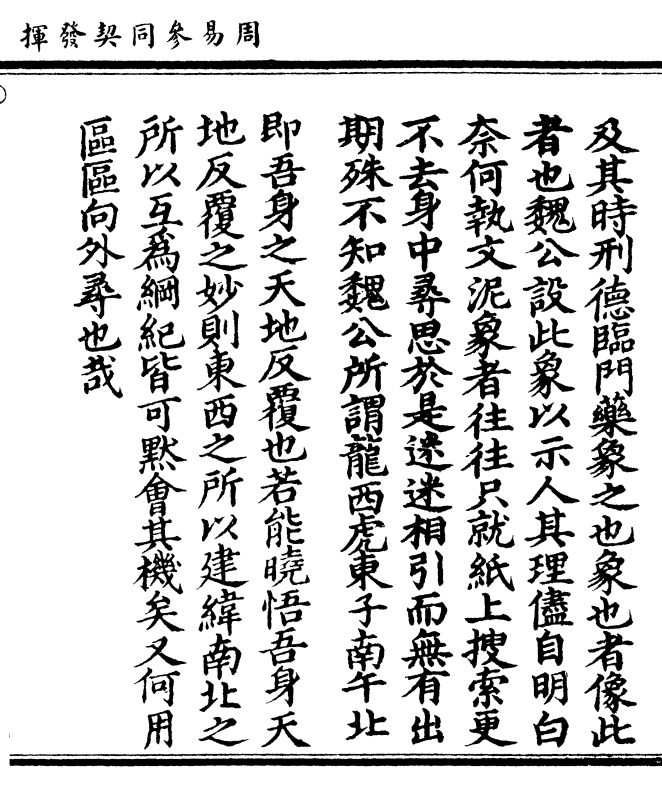 周易參同契發揮
及其時刑德臨門藥象之也象也者像此
者也魏公設此象以示人其理儘自明白
奈何執文泥象者往往只就紙上搜索更
不去身中尋思於是迷迷相引而無有出
期殊不知魏公所謂龍西虎東子南午北
即吾身之天地反覆也若能曉悟吾身天
地反覆之妙則東西之所以建緯南北之
所以互爲綱紀皆可默會其機矣又何用
區區向外尋也哉